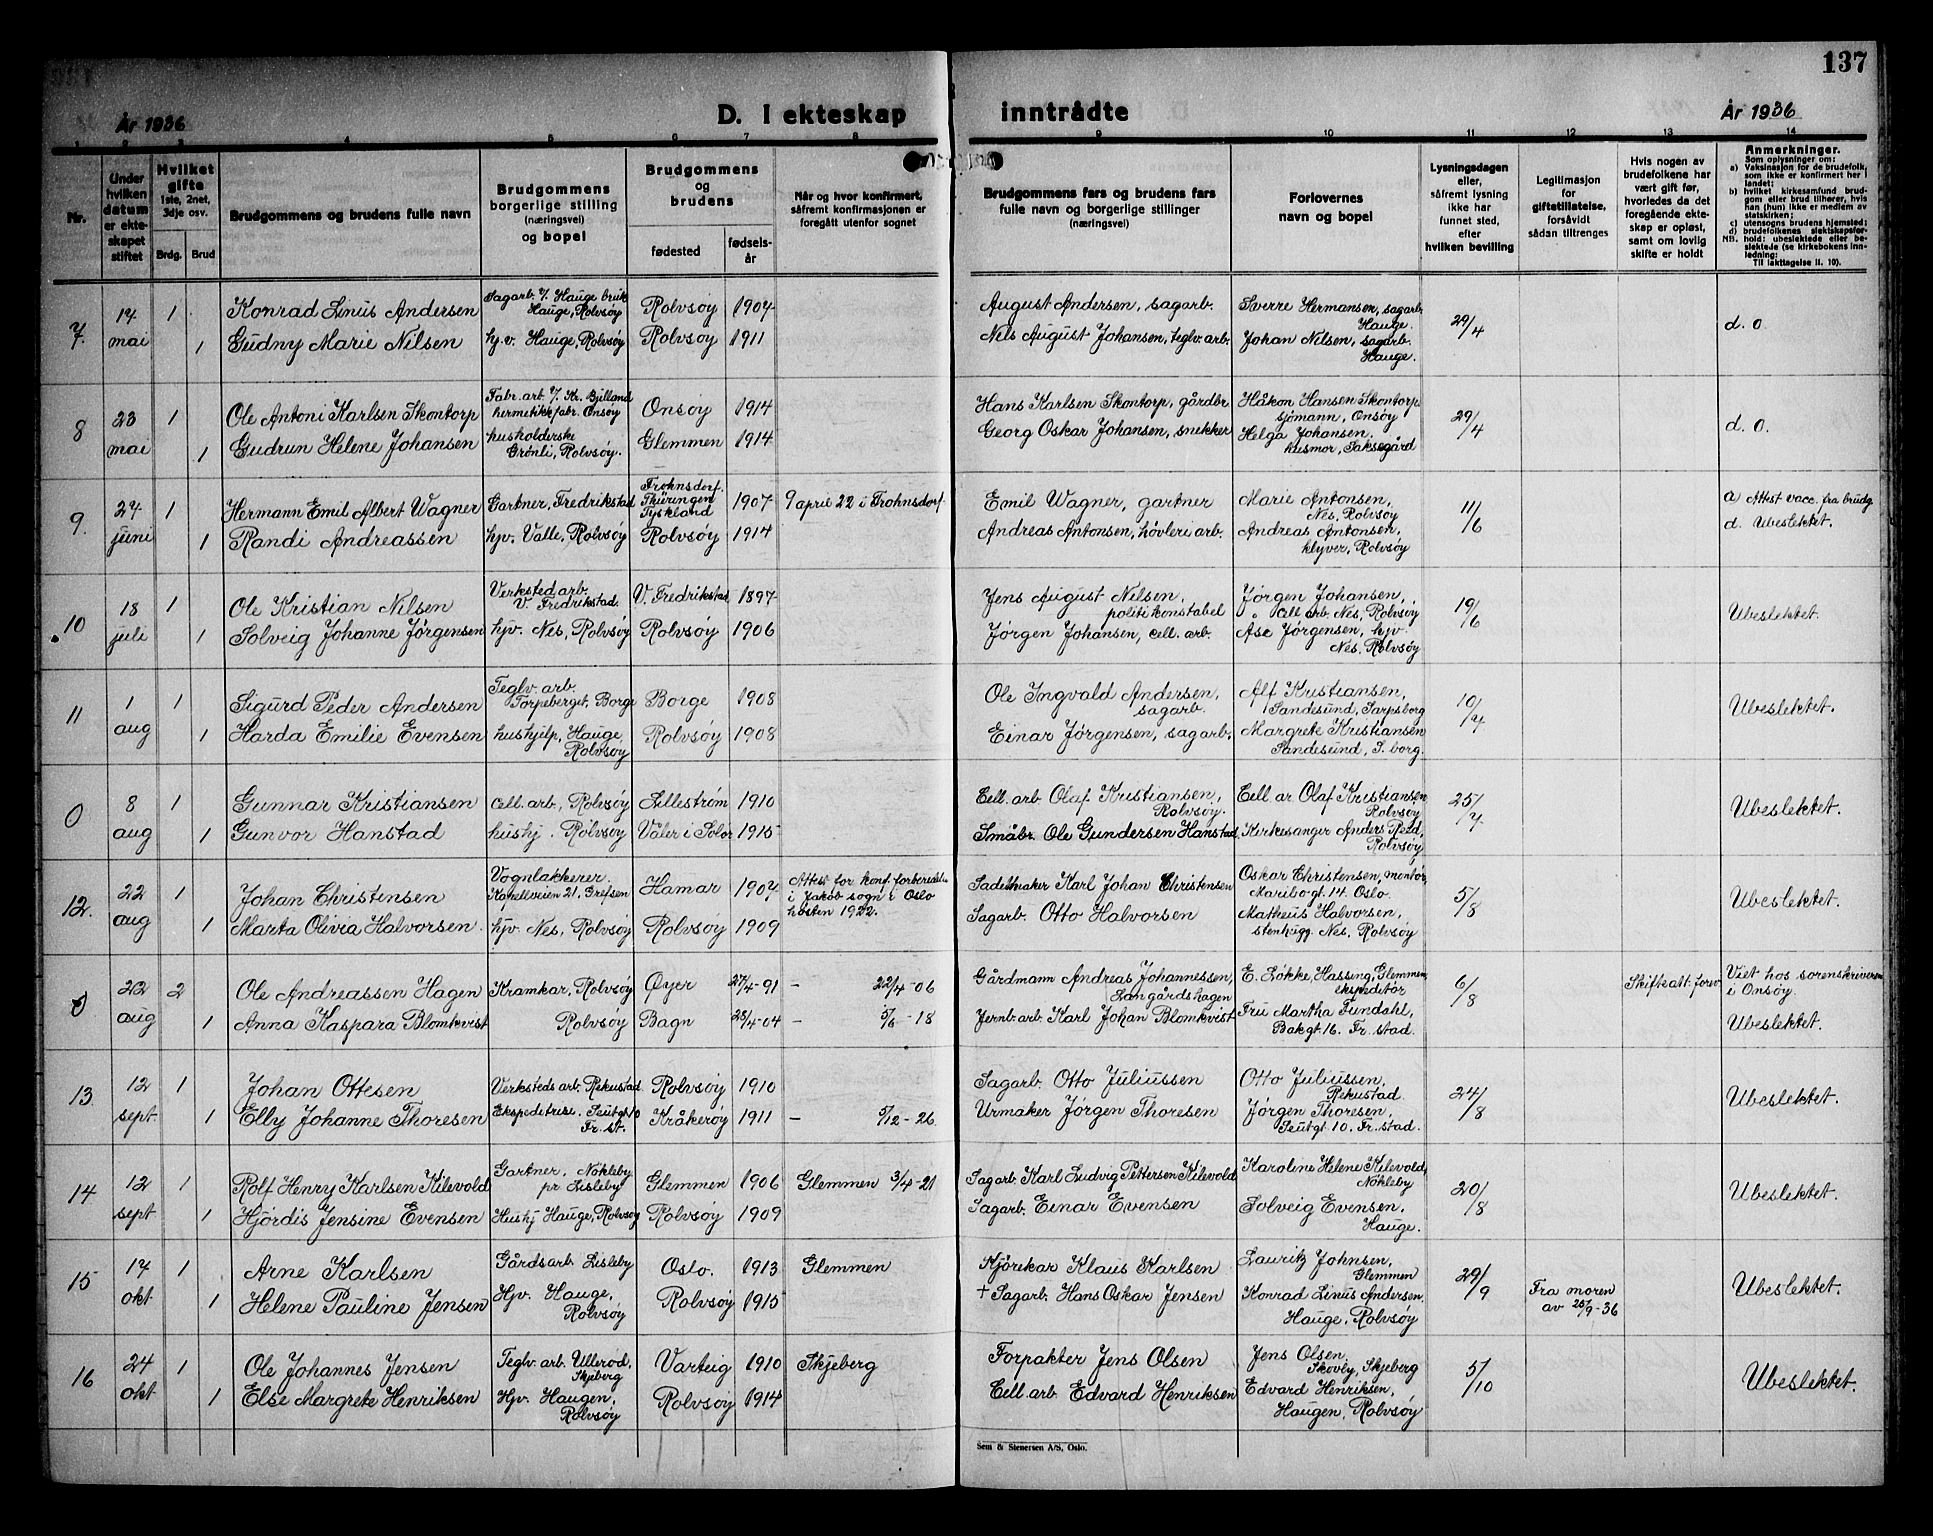 137
År 1936
D. I ekteskap inntrådte
År 1936
1 2 3 4 5 6 7 8 9 10 11 12 13 14
Nr.
Under hvilken datum er ekteskapet stiftet
Hvilket gifte 1ste, 2net, 3dje osv.
Brdg. Brud
Brudgommens og brudens fulle navn
Brudgommens borgerlige stilling (næringsvei) og bopel
Brudgommens og brudens
fødested
fødselsår
Når og hvor konfirmert, såfremt konfirmasjonen er foregått utenfor sognet
Brudgommens fars og brudens fars fulle navn og borgerlige stillinger (næringsvei)
Forlovernes navn og bopel
Lysningsdagen eller, såfremt lysning ikke har funnet sted, efter hvilken bevilling
Legitimasjon for giftetillatelse, forsåvidt sådan tiltrenges
Hvis nogen av brudefolkene har vært gift før, hvorledes da det foregående ekteskap er opløst, samt om lovlig skifte er holdt
Anmerkninger.
Som oplysninger om:
a) Vaksinasjon for de brudefolk, som ikke er konfirmert her i landet;
b) hvilket kirkesamfund brudgom eller brud tilhører, hvis han (hun) ikke er medlem av statskirken;
c) utensogns brudens hjemsted;
d) brudefolkenes slektskapsforhold: ubeslektede eller beslektede (se kirkebokens innledning:
NB. Til iakttagelse II. 10).
7. 14 mai 1 Konrad Linus Andersen Sagarb. v/ Hauge bruk Hauge, Rolvsøy Rolvsøy 1904 August Andersen, sagarb. Sverre Hermansen, sagarb. Hauge. 29/4 d. o.
1 Gudny Marie Nilsen hj.v. Hauge, Rolvsøy Rolvsøy 1911 Nels August Johansen, teglv. arb. Johan Nilsen, sagarb. Hauge.
8 23 mai 1 Ole Antoni Karlsen Skontorp Fabr. arb. v/ Kr. Bjelland hermetikkfabr. Onsøy Onsøy 1914 Hans Karlsen Skontorp, gårdbr. Håkon Hansen Skontorp sjømann, Onsøy 29/4 d. o.
1 Gudrun Helene Johansen husholderske Grønli, Rolvsøy. Glemmen 1914 Georg Oskar Johansen, snekker Helga Johansen, husmor, Saksegård
9. 24 juni 1 Hermann Emil Albert Wagner Gartner, Fredrikstad Frohnsdorf Thüringen Tyskland 1907 9 april 22 i Frohnsdorf Emil Wagner, gartner Marie Antonsen, Nes, Rolvsøy 11/6 a Attest vacc. fra brudg
1 Randi Andreassen hjv. Valle, Rolvsøy Rolvsøy 1914 Andreas Antonsen, høvleri arb. Andreas Antonsen, klyver, Rolvsøy d. Ubeslektet.
10 18 juli 1 Ole Kristian Nilsen Verksted arb. V. Fredrikstad. V. Fredrikstad 1897 Jens August Nilsen, politikonstabel Jørgen Johansen, cell. arb. Nes, Rolvsøy 19/6 Ubeslektet.
1 Solveig Johanne Jørgensen hjv. Nes, Rolvsøy Rolvsøy 1906 Jørgen Johansen, cell. arb. Åse Jørgensen, hjv. Nes, Rolvsøy
11 1 aug 1 Sigurd Peder Andersen Teglv. arb. Torpeberget, Borge Borge 1908 Ole Ingvald Andersen, sagarb. Alf Kristiansen, Sandesund, Sarpsborg 10/4 Ubeslektet.
1 Harda Emilie Evensen hushjelp, Hauge, Rolvsøy Rolvsøy 1908 Einar Jørgensen, sagarb. Margrete Kristiansen Sandesund, S. borg.
0 8 aug 1 Gunnar Kristiansen Cell. arb, Rolvsøy Lillestrøm 1910 Cell. arb Olaf Kristiansen, Rolvsøy. Cell ar Olaf Kristiansen Rolvsøy 25/4 Ubeslektet.
1 Gunvor Hanstad hushj. Rolvsøy Våler i Solør 1915 Småbr. Ole Gundersen Hanstad Kirkesanger Anders Reed, Rolvsøy
12. 22 aug 1 Johan Christensen Vognlakkerer. Kapellveien 21, Grefsen Hamar 1904 Attest for konf. forberedelse i Jakob sogn i Oslo høsten 1922. Sadelmaker Karl Johan Christensen Oskar Christensen, montør, Maribogt. 14. Oslo. 5/8 Ubeslektet.
1 Marta Olivia Halvorsen. hjv. Nes, Rolvsøy Rolvsøy 1909 Sagarb. Otto Halvorsen Matheus Halvorsen, stenhugg. Nes, Rolvsøy
0 22 aug 2 Ole Andreassen Hagen Kramkar, Rolvsøy Øyer 27/4-91 – 22/4-06 Gårdmann Andreas Johannessen, Langårdshagen E. Løkke, Hassing, Glemmen ekspeditør 6/8 Skifteatt. forev Viet hos sorenskriveren i Onsøy.
1 Anna Kaspara Blomkvist Rolvsøy Bagn 25/4-04 – 5/6-18 Jernb. arb. Karl Johan Blomkvist Fru Martha Tundahl, Bakgt. 16. Fr. stad. Ubeslektet.
13. 12 sept. 1 Johan Ottesen Verksteds arb. Rekustad Rolvsøy 1910 Sagarb. Otto Juliussen Otto Juliussen, Rekustad. 24/8 Ubeslektet.
1 Elly Johanne Thoresen Ekspeditrise. Seutgt 10 Fr. st. Kråkerøy 1911 – 5/12-26. Urmaker Jørgen Thoresen Jørgen Thoresen, Seutgt. 10. Fr. stad.
14 12 sept. 1 Rolf Henry Karlsen Kilevold Gartner, Nøkleby pr Lisleby Glemmen 1906 Glemmen 3/4-21 Sagarb Karl Ludvig Pettersen Kilevold Karoline Helene Kilevold, Nøkleby 20/8 Ubeslektet.
1 Hjørdis Jensine Evensen Hushj Hauge, Rolvsøy Rolvsøy 1909 Sagarb. Einar Evensen Solveig Evensen. Hauge.
15 14 okt 1 Arne Karlsen Gårdsarb. Lisleby Oslo. 1913 Glemmen Kjørekar Klaus Karlsen Lauritz Johnsen, Glemmen 29/9 Fra moren av 25/9-36 Ubeslektet.
1 Helene Pauline Jensen Hjv. Hauge, Rolvsøy Rolvsøy 1915 † Sagarb. Hans Oskar Jensen Konrad Linus Andersen, Hauge, Rolvsøy
16 24 okt 1 Ole Johannes Jensen Teglv. arb. Ullerød, Skjeberg Varteig 1910 Skjeberg Forpakter Jens Olsen Jens Olsen, Skovby, Skjeberg 5/10 Ubeslektet.
1 Else Margrete Henriksen Hjv. Haugen, Rolvsøy Rolvsøy 1914 Cell. arb. Edvard Henriksen Edvard Henriksen, Haugen, Rolvsøy
Sem & Stenersen A/S, Oslo.